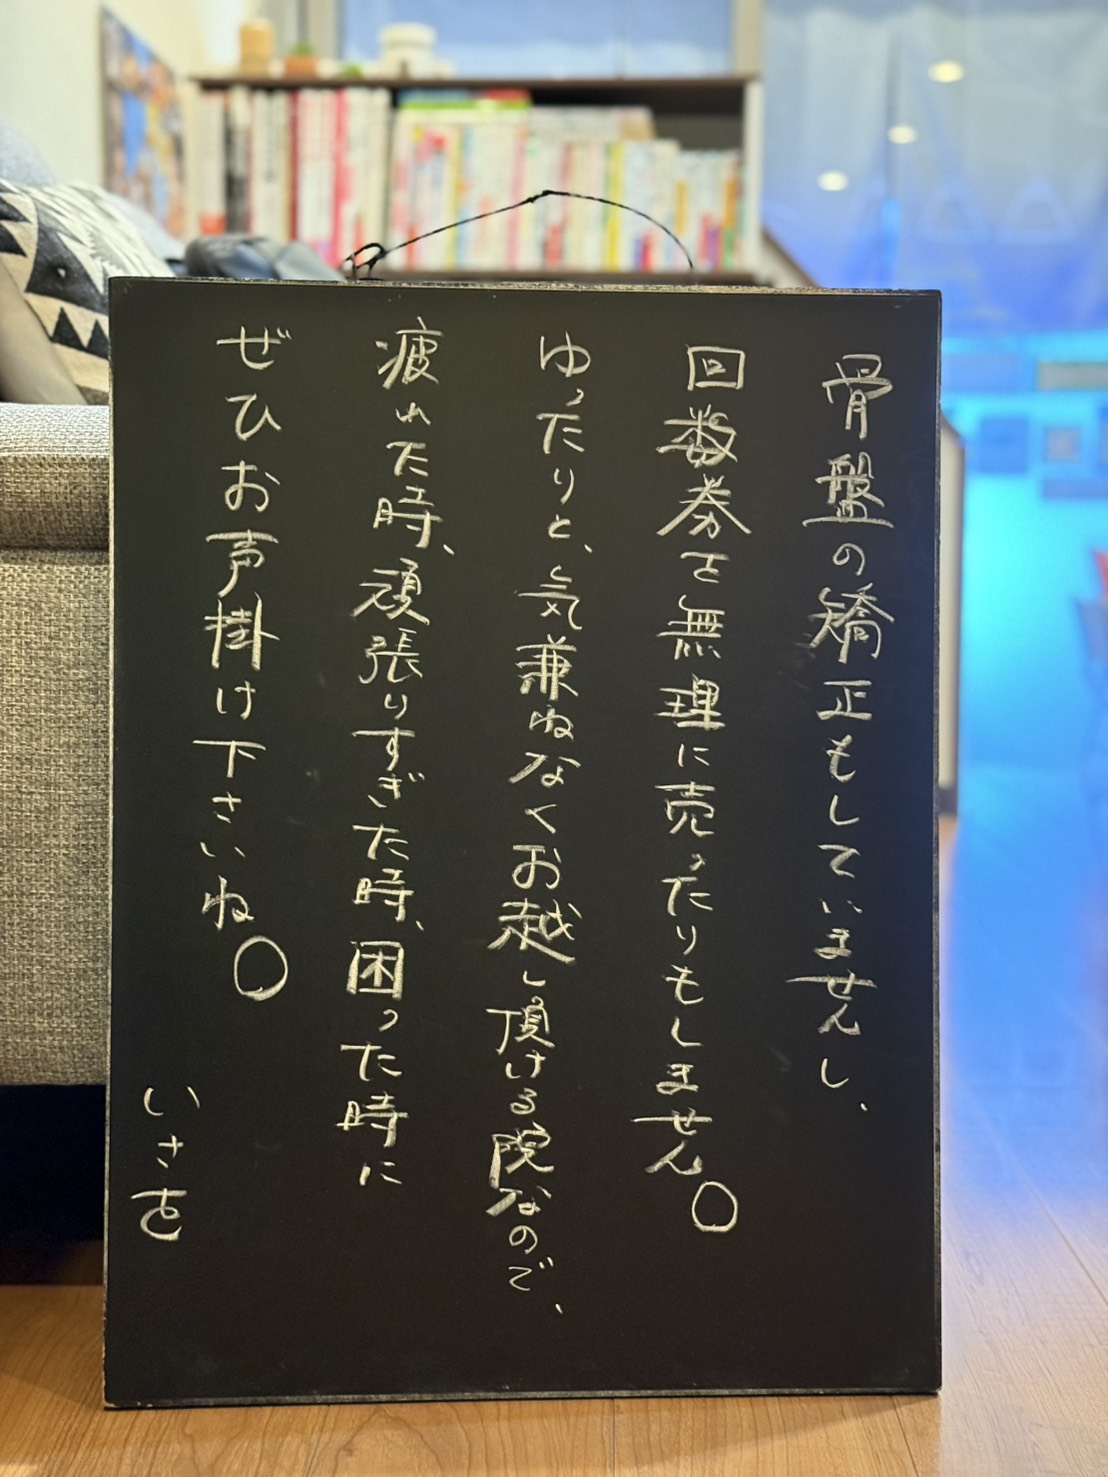 骨盤の矯正もしていませんし、
回数券を無理に売ったりもしません。
ゆったりと、気兼ねなくお越し頂ける院なので、
疲れた時、頑張りすぎた時、困った時に
ぜひお声掛け下さいね。
いさを